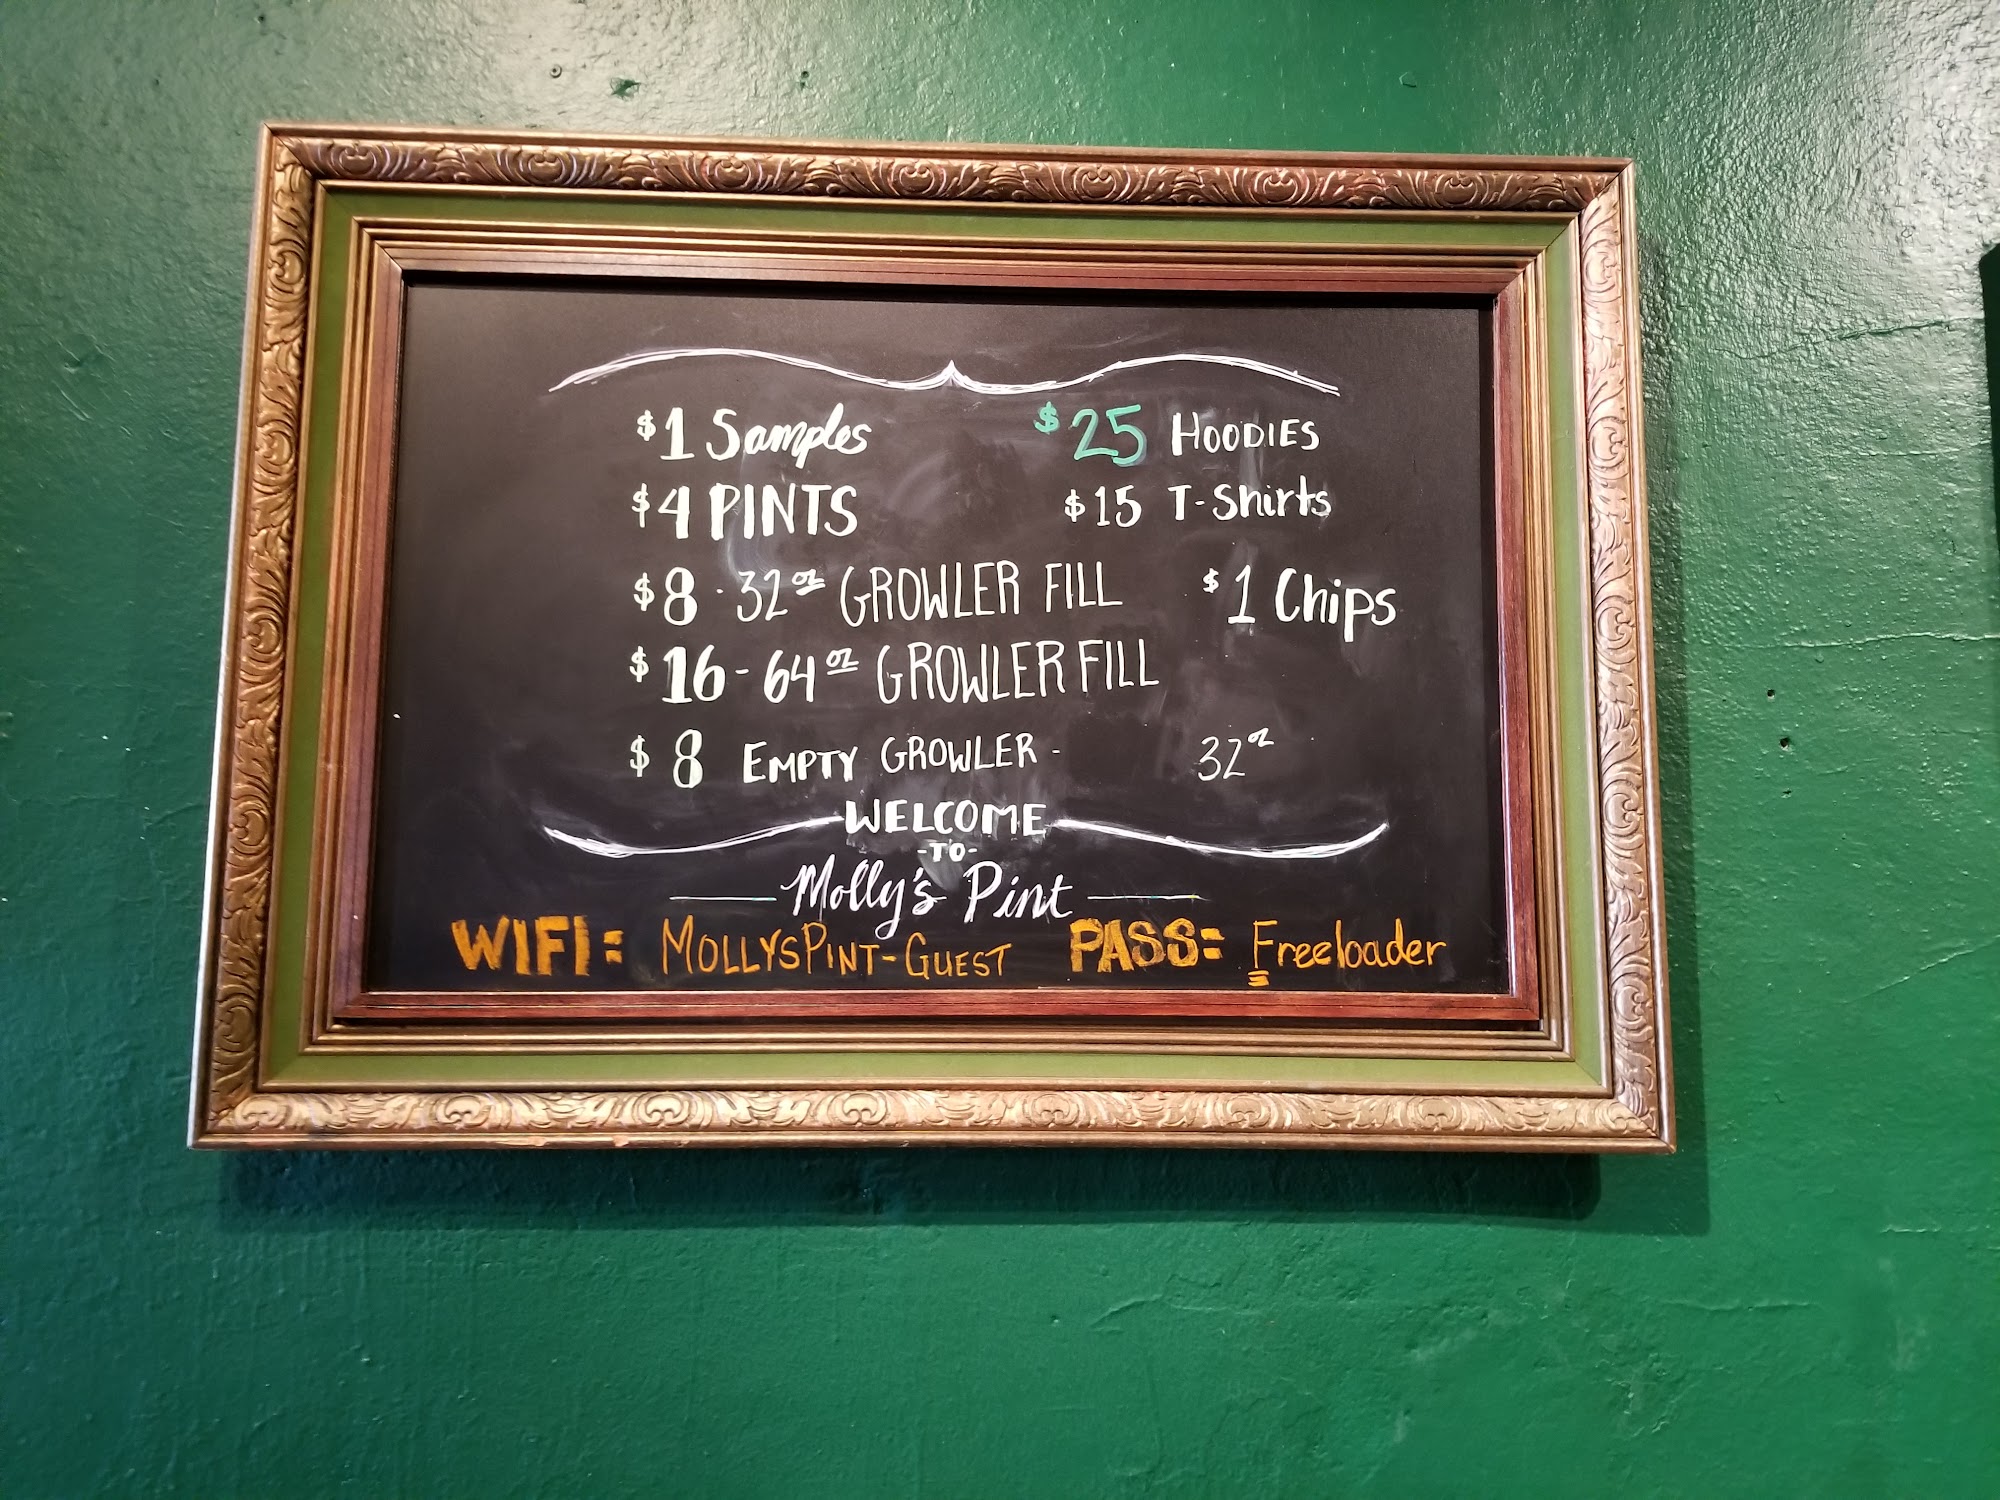 $1 Samples $25 HOODIES
$4 PINTS $15 T-Shirts
$8 - 32oz GROWLER FILL $1 Chips
$16 - 64oz GROWLER FILL
$8 EMPTY GROWLER - 32oz
WELCOME
-TO-
Molly's Pint
WIFI: MOLLYSPINT-GUEST PASS: Freeloader